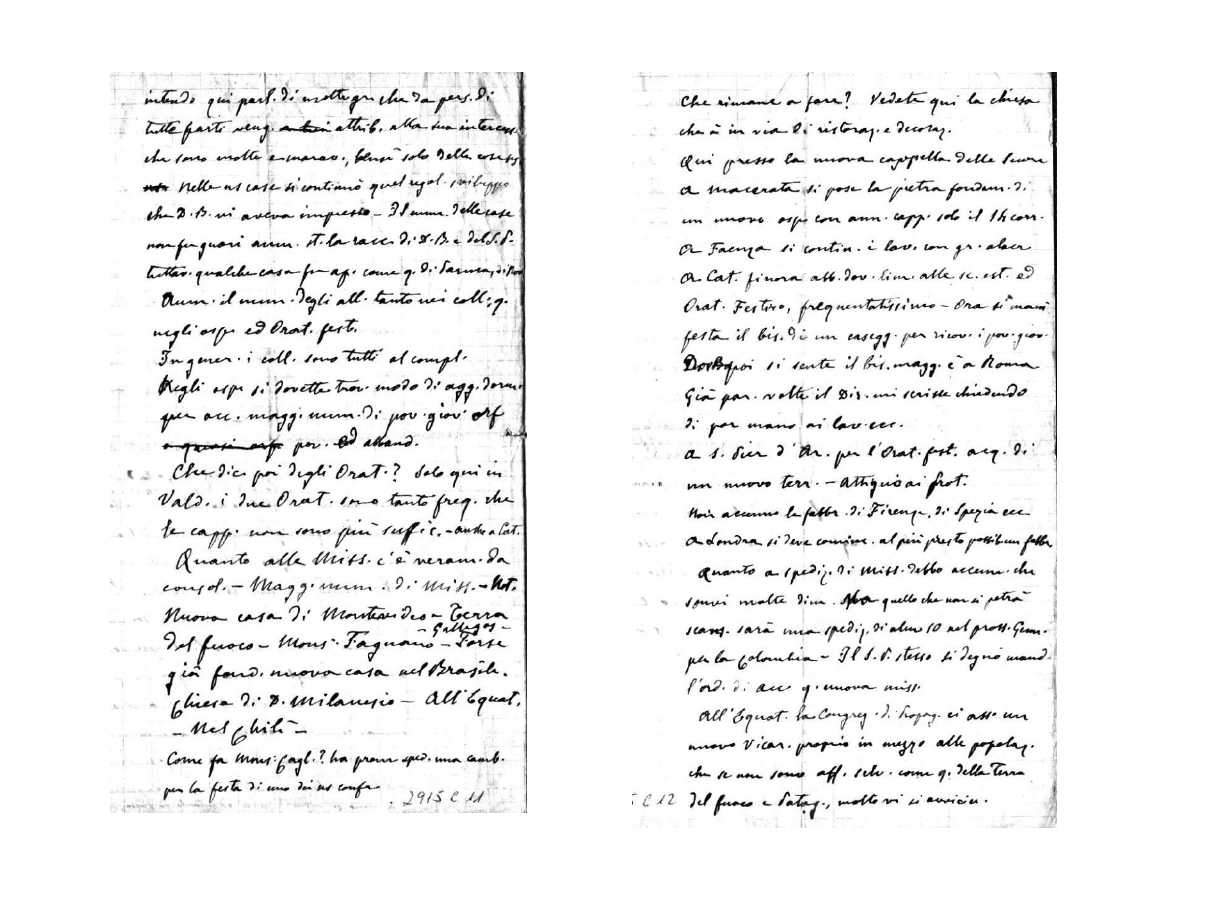 intendo qui parl. di molte gr. che da pers. di
tutte parti veng. attrib. alla sua intercess.
che sono molte e marav., bensì solo delle cose ns.
Nelle ns case si continuò quel regol. sviluppo
che D. B. vi aveva impresso – Il num. delle case
non fu guari aum. st. la racc. di D. B. e del S. P.
tuttav. qualche casa fu ap. come q. di Parma, di
Aum. il num. degli all. tanto nei coll. q.
negli osp. ed Orat. fest.
In gener. i coll. sono tutti al compl.
Negli osp. si dovette trov. modo di agg. dormi.
per acc. magg. num. di pov. giov. orf
o quasi orf. pov. ed abband.
Che dico poi degli Orat.? Solo qui in
Vald. i due Orat. sono tanto freq. che
le capp. non sono più suffic. – anche a Cat.
Quanto alle Miss. c'è veram. da
consol. – Magg. num. di Miss. – Not.
Nuova casa di Montevideo – Terra
Gallegos –
del fuoco – Mons. Fagnano – Forse
già fond. nuova casa nel Brasile.
Chiesa di D. Milanesio – All'Equat.
– Nel Chilì –
Come fa Mons. Cagl.? ha prom. sped. una camb.
per la festa di uno dei ns confr.
2915 C 11
Che rimane a fare? Vedete qui la chiesa
che è in via di ristoraz. e decoraz.
Qui presso la nuova cappella delle Suore
A Macerata si pose la pietra fondam. di
un nuovo osp. con ann. capp. solo il 14 corr.
A Faenza si contin. i lav. con gr. alacr
A Cat. finora abb. dov. lim. alle sc. est. ed
Orat. Festivo, frequentatissimo – Ora si mani
festa il bis. di un casegg. per ricov. i pov. giov.
si sente il bis. magg. è a Roma
Già par. volte il Dir. mi scrisse chiedendo
di por mano ai lav. ecc.
A S. Pier d'Ar. per l'Orat. fest. acq. di
un nuovo terr. – attiguo ai
Non accenno le fabbr. di Firenze, di Spezia ecc
A Londra si deve cominc. al più presto possib. un fabbr.
Quanto a spediz. di Miss. debbo accenn. che
sonvi molte dim. quello che non si potrà
scans. sarà una spediz. di almen 10 nel pross. Genn.
per la Colombia – Il S. P. stesso si degnò mand.
l'ord. di acc. q. nuova miss.
All'Equat. la Congreg. di Propag. ci ass. un
nuovo Vicar. proprio in mezzo alle popolaz.
che se non sono aff. selv. come q. della Terra
C 12 del fuoco e Patag., molto vi si avvicin.